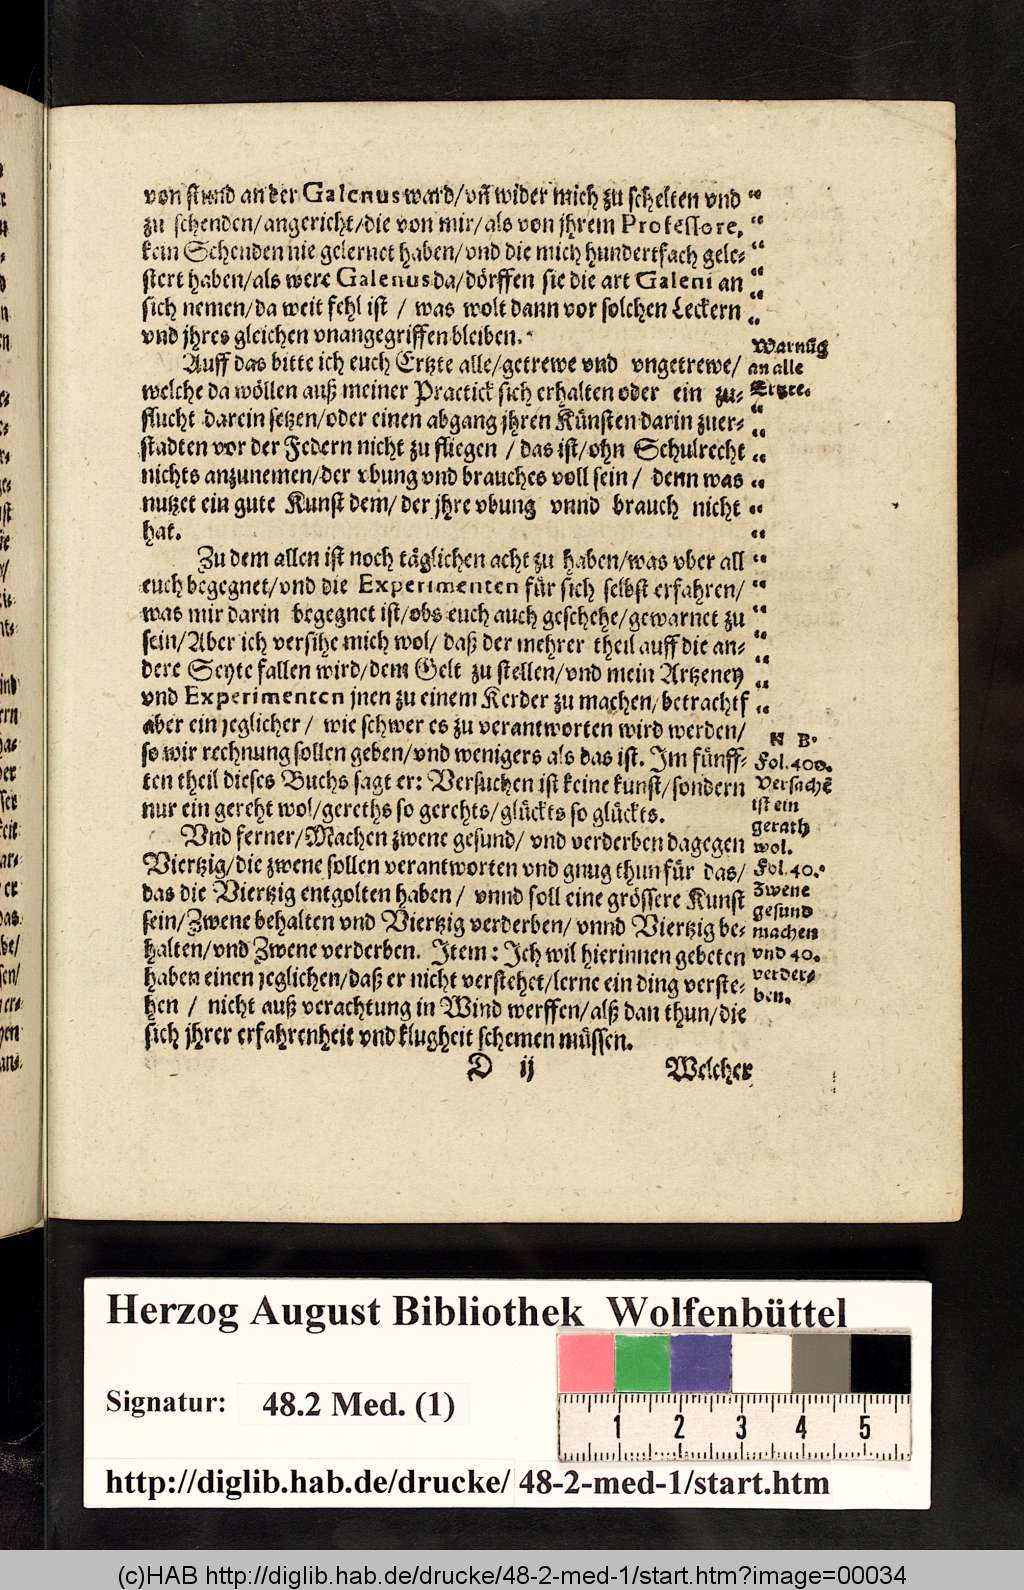 von stund an der Galenus ward/ vñ wider mich zu schelten vnd
zu schenden/ angericht/ die von mir/ als von jhrem Professore,
kein Schenden nie gelernet haben/ vnd die mich hundertfach gele-
stert haben/ als were Galenus da/ dörffen sie die art Galeni an
sich nemen/ da weit fehl ist / was wolt dann vor solchen Leckern
vnd jhres gleichen vnangegriffen bleiben.
Auff das bitte ich euch Ertzte alle/ getrewe vnd vngetrewe/
welche da wöllen auß meiner Practick sich erhalten oder ein zu-
flucht darein setzen/ oder einen abgang jhren Künsten darin zuer-
stadten vor der Federn nicht zu fliegen / das ist/ ohn Schulrecht
nichts anzunemen/ der vbung vnd brauches voll sein / denn was
nutzet ein gute Kunst dem/ der jhre vbung vnnd brauch nicht
hat.
Zu dem allen ist noch täglichen acht zu haben/ was vber all
euch begegnet/ vnd die Experimenten für sich selbst erfahren/
was mir darin begegnet ist/ obs euch auch geschehe/ gewarnet zu
sein/ Aber ich versihe mich wol/ daß der mehrer theil auff die an-
dere Seyte fallen wird/ dem Gelt zu stellen/ vnd mein Artzeney
vnd Experimenten jnen zu einem Kerder zu machen/ betracht
aber ein jeglicher / wie schwer es zu verantworten wird werden/
so wir rechnung sollen geben/ vnd wenigers als das ist. Im fünff-
ten theil dieses Buchs sagt er: Versuchen ist keine kunst/ sondern
nur ein gereht wol/ gereths so gerehts/ glückts so glückts.
Vnd ferner/ Machen zwene gesund/ vnd verderben dagegen
Viertzig/ die zwene sollen verantworten vnd gnug thun für das/
das die Viertzig entgolten haben / vnnd soll eine grössere Kunst
sein/ Zwene behalten vnd Viertzig verderben/ vnnd Viertzig be-
halten/ vnd Zwene verderben. Item: Ich wil hierinnen gebeten
haben einen jeglichen/ daß er nicht verstehet/ lerne ein ding verste-
hen / nicht auß verachtung in Wind werffen/ alß dan thun/ die
sich jhrer erfahrenheit vnd klugheit schemen müssen.
D ij Welcher
Warnūg
an alle
Ertzte.
N B.
Fol. 400.
Versachē
ist ein
gerath
wol.
Fol. 40.
Zwene
gesund
machen
vnd 40.
verder-
ben.
Herzog August Bibliothek Wolfenbüttel
Signatur: 48.2 Med. (1)
1 2 3 4 5
http://diglib.hab.de/drucke/ 48-2-med-1/start.htm
(c)HAB http://diglib.hab.de/drucke/48-2-med-1/start.htm?image=00034